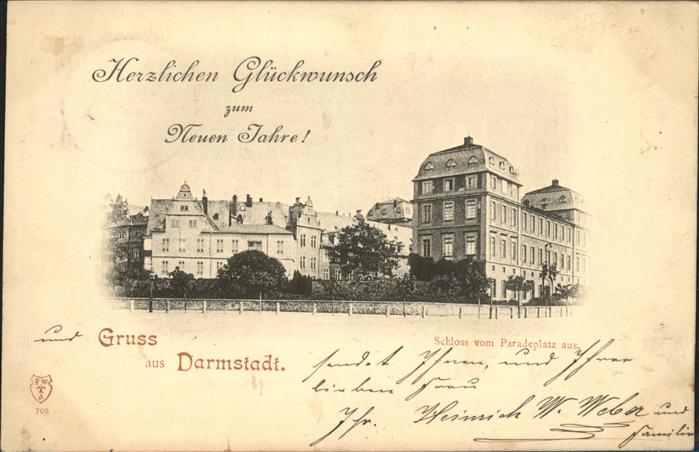 Herzlichen Glückwunsch
zum
Neuen Jahre!
und Gruss
aus Darmstadt.
Schloss vom Paradeplatz aus.
sendet Ihnen, und Ihrer
lieben Frau
Ihr. Heinrich W. Weber und
Familie
F W
D
705